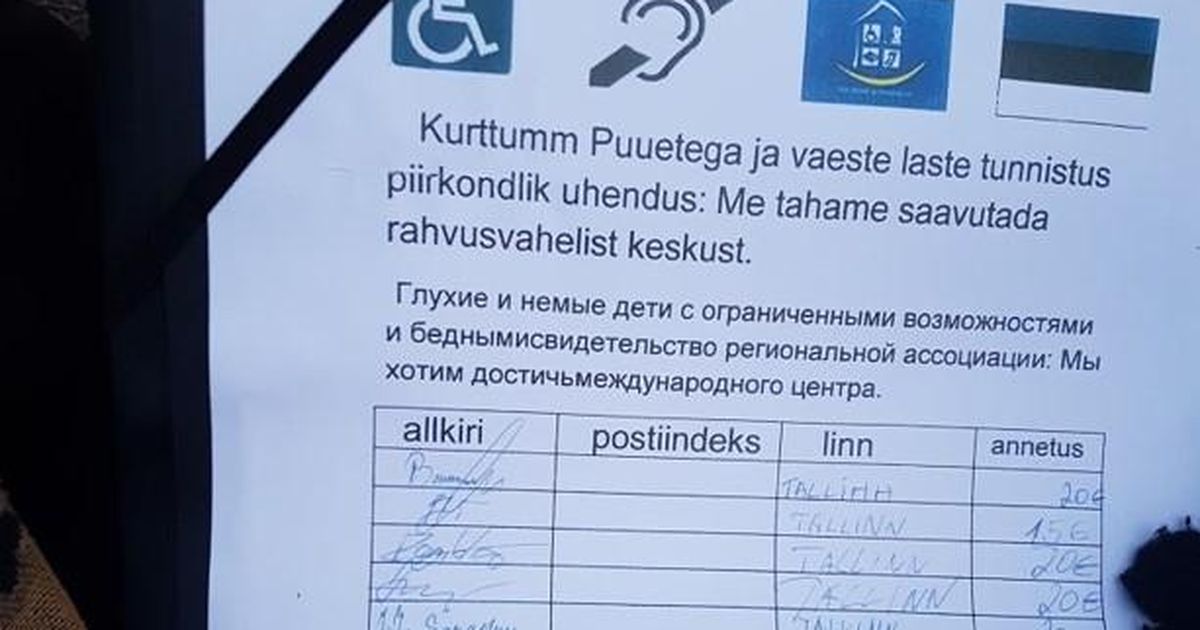 Kurttumm Puuetega ja vaeste laste tunnistus
piirkondlik uhendus: Me tahame saavutada
rahvusvahelist keskust.
Глухие и немые дети с ограниченными возможностями
и беднымисвидетельство региональной ассоциации: Мы
хотим достичьмеждународного центра.
allkiri postiindeks linn annetus
TALLINN 20€
TALLINN 15€
TALLINN 20€
TALLINN 20€
TALLINN